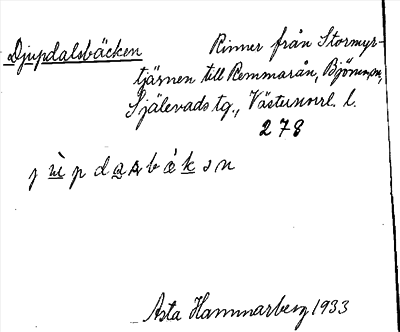 Djupdalsbäcken
Rinner från Stormyr-
tjärnen till Remmarån, Björna sn,
Själevads tg., Västernorrl. l.
278
Asta Hammarberg 1933